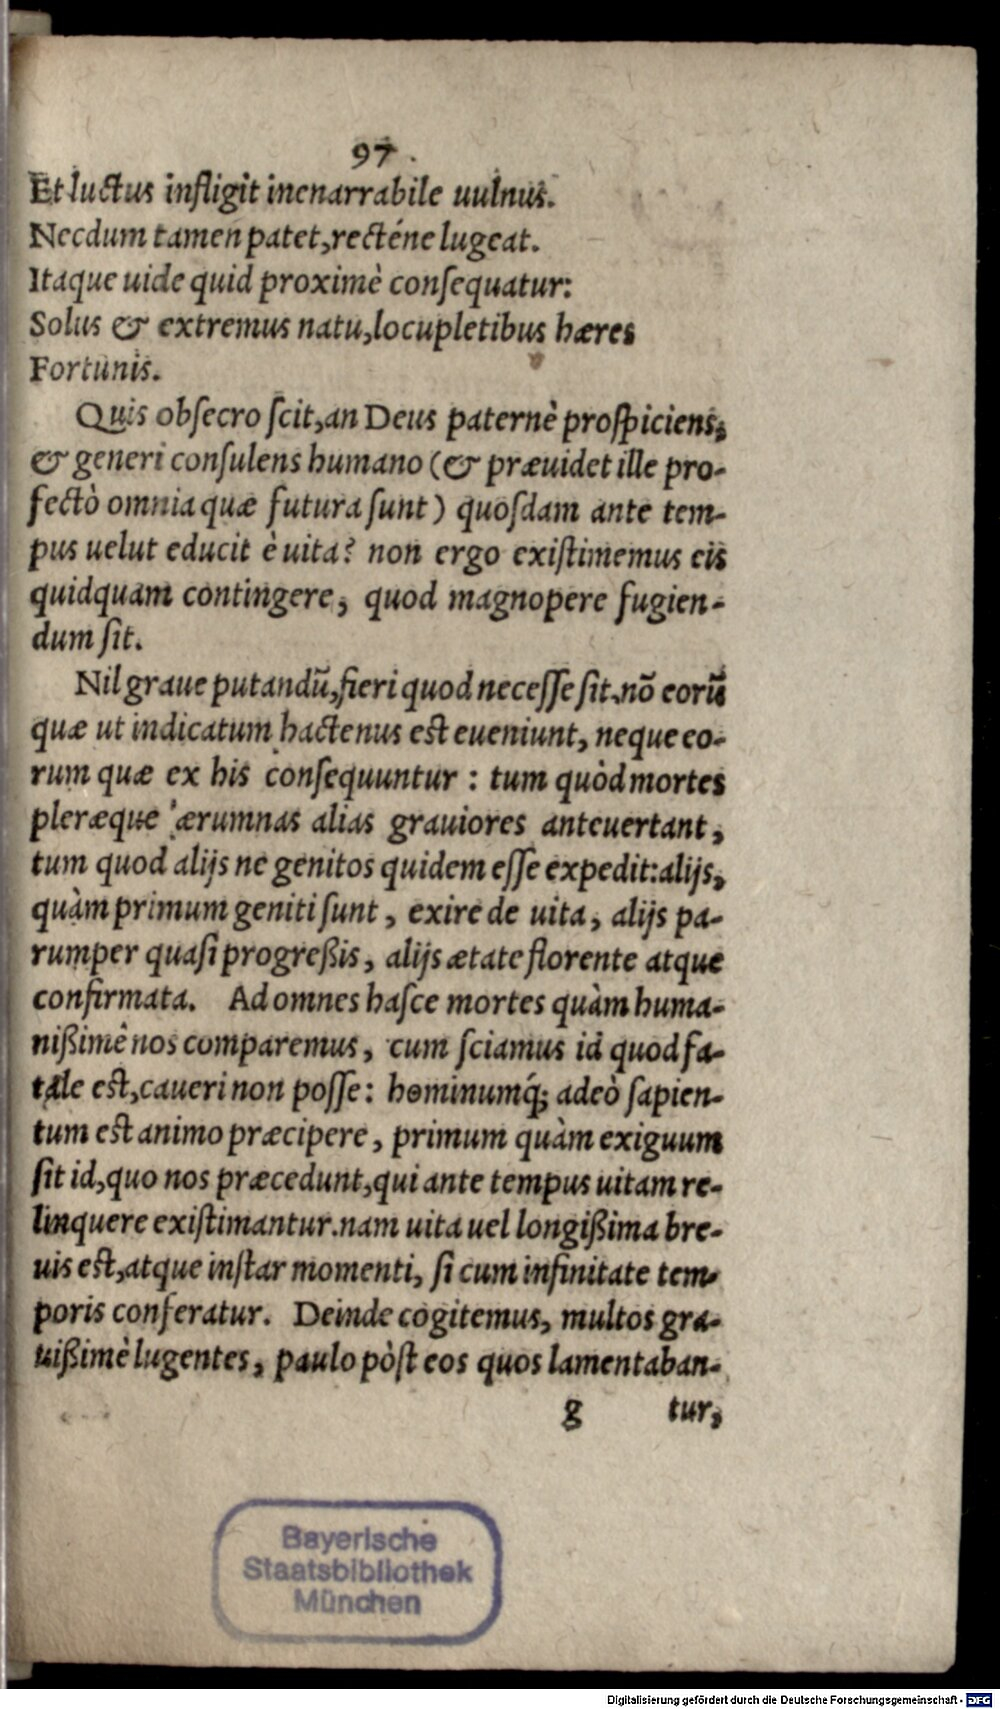 97.
Et luctus infligit inenarrabile uulnus.
Necdum tamen patet, recténe lugeat.
Itaque uide quid proximè conſequatur:
Solus & extremus natu, locupletibus hæres
Fortunis.
Quis obſecro ſcit, an Deus paternè proſpiciens,
& generi conſulens humano (& præuidet ille pro-
fectò omnia quæ futura ſunt) quoſdam ante tem-
pus uelut educit è uita? non ergo exiſtimemus eis
quidquam contingere, quod magnopere fugien-
dum ſit.
Nil graue putandū, fieri quod neceſſe ſit, nō eorū
quæ ut indicatum hactenus est eueniunt, neque eo-
rum quæ ex his conſequuntur : tum quòd mortes
pleræque ærumnas alias grauiores anteuertant,
tum quod alijs ne genitos quidem eſſe expedit: alijs,
quàm primum geniti ſunt, exire de uita, alijs pa-
rumper quaſi progreßis, alijs ætate florente atque
confirmata. Ad omnes haſce mortes quàm huma-
nißimè nos comparemus, cum ſciamus id quod fa-
tale est, caueri non poſſe: hominumq́; adeò ſapien-
tum est animo præcipere, primum quàm exiguum
ſit id, quo nos præcedunt, qui ante tempus uitam re-
linquere exiſtimantur. nam uita uel longißima bre-
uis est, atque inſtar momenti, ſi cum infinitate tem-
poris conferatur. Deinde cogitemus, multos gra-
uißimè lugentes, paulo pòſt eos quos lamentaban-
g tur,
Bayerische
Staatsbibliothek
München
Digitalisierung gefördert durch die Deutsche Forschungsgemeinschaft - DFG